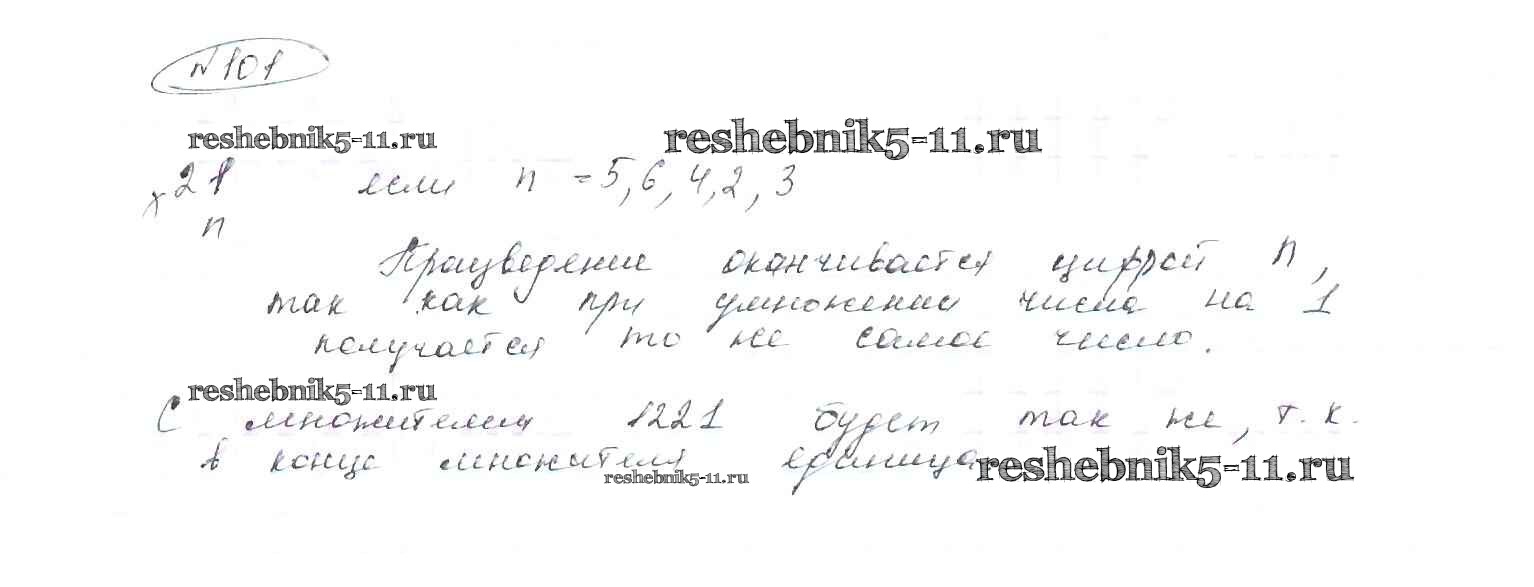 №101
reshebnik5-11.ru reshebnik5-11.ru
х 21 если n = 5, 6, 4, 2, 3
n
Произведение оканчивается цифрой n,
так как при умножении числа на 1
получается то же самое число.
reshebnik5-11.ru
С множителем 1221 будет так же, т. к.
в конце множителя единица
reshebnik5-11.ru reshebnik5-11.ru